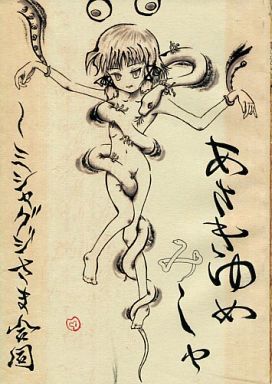 あさきゆめ
みしゃ
〜ミシャグジさま合同